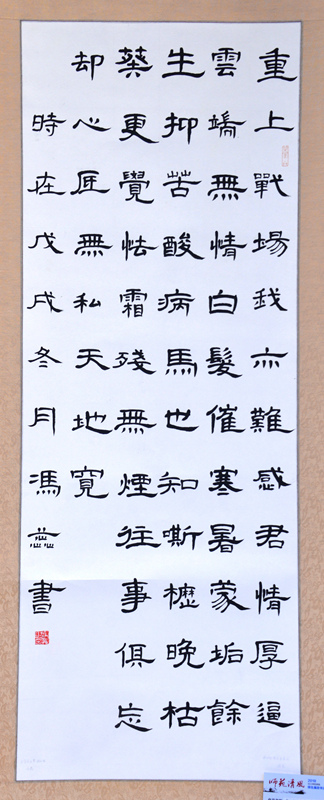 重上戰場我亦難感君情厚逼
雲端無情白髮催寒暑蒙垢餘
生抑苦酸病馬也知嘶櫪晚枯
葵更覺怯霜殘無煙往事俱忘
却心匠無私天地寬
時在戊戌冬月馮書
師範清風